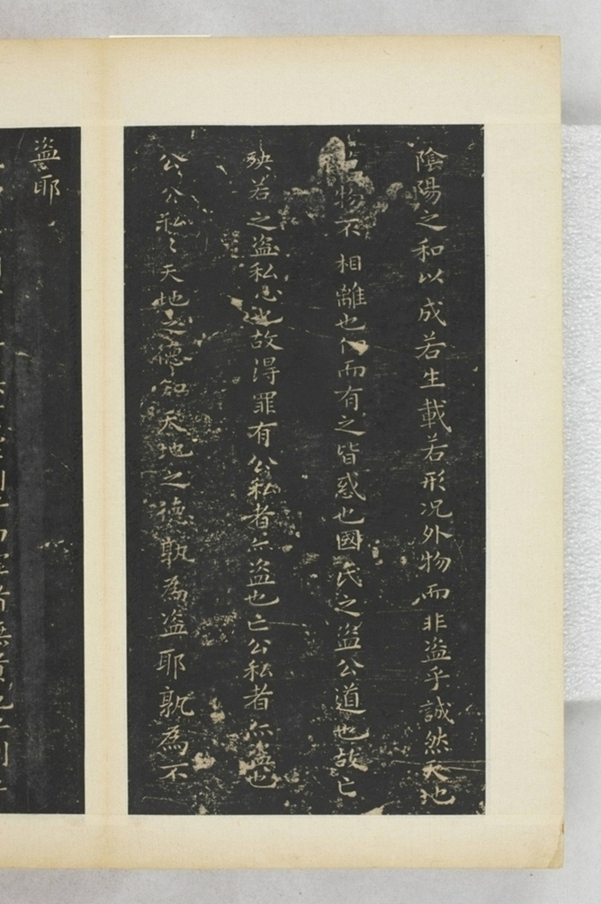 陰陽之和以成若生載若形况外物而非盗乎誠然天地
物不相離也仞而有之皆惑也國氏之盗公道也故亡
殃若之盗私心也故得罪有公私者亦盗也亡公私者亦盗也
公公私〻天地之德知天地之德孰為盗耶孰為不
盗耶